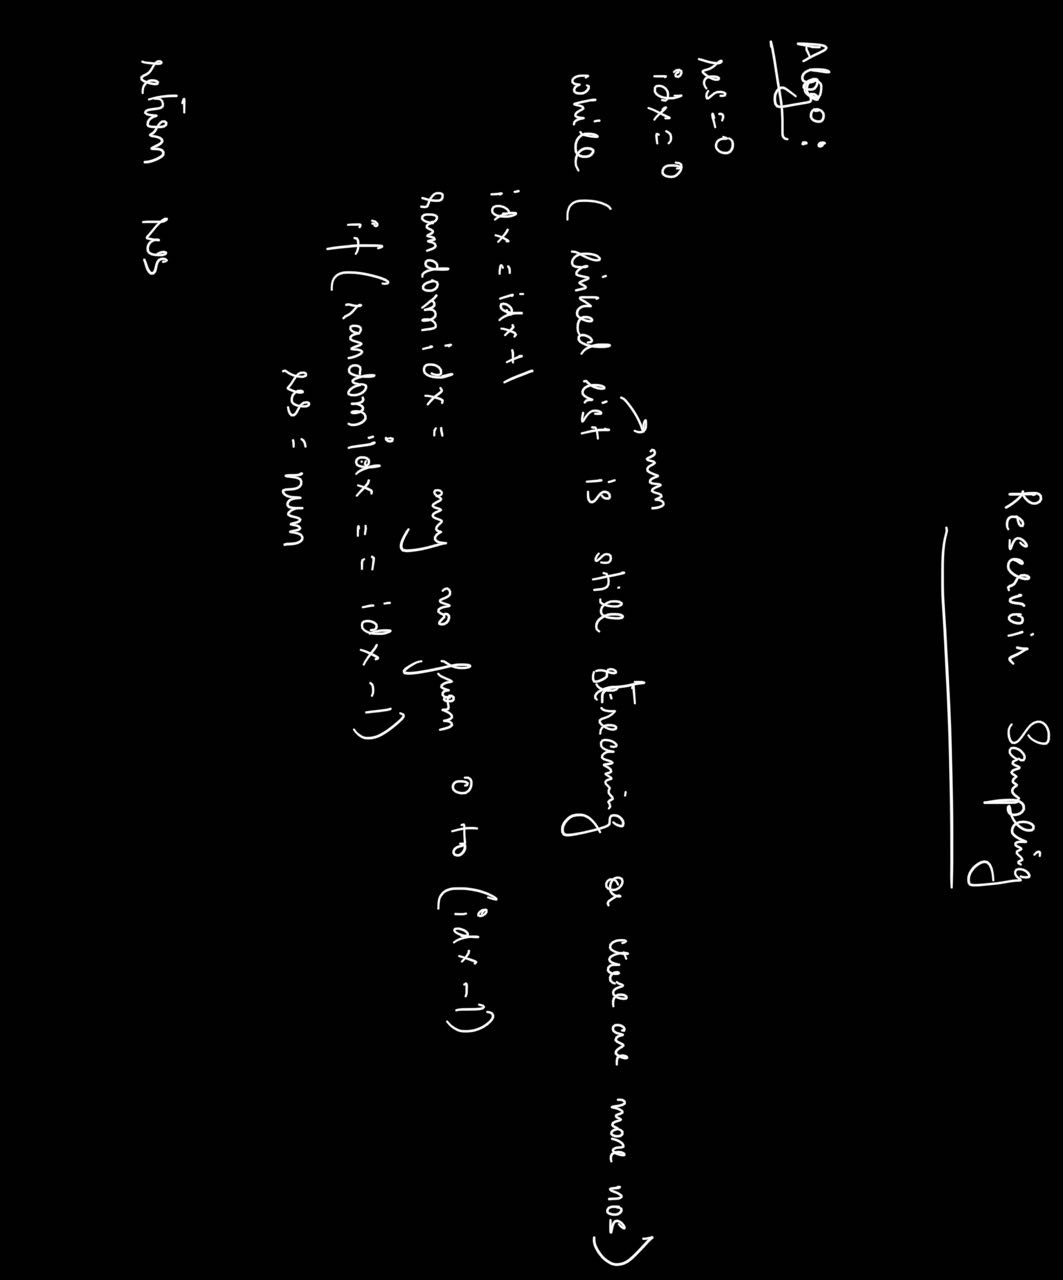 Reservoir Sampling
Alogo:
res = 0
idx = 0
num
while ( linked list is still streaming or there are more nos)
idx = idx+1
randomidx = any no from 0 to (idx-1)
if (randomidx == idx-1)
res = num
return res